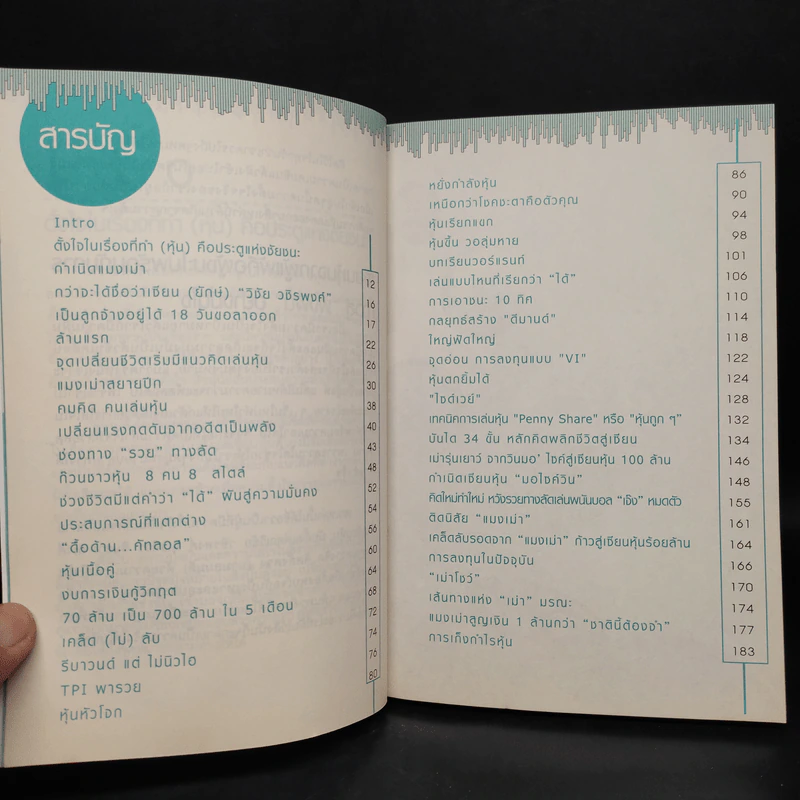 สารบัญ
Intro
ตั้งใจในเรื่องที่ทำ (หุ้น) คือประตูแห่งชัยชนะ
กำเนิดแมงเม่า
กว่าจะได้ชื่อว่าเซียน (ยักษ์) "วิชัย วชิรพงศ์"
เป็นลูกจ้างอยู่ได้ 18 วันขอลาออก
ล้านแรก
จุดเปลี่ยนชีวิตเริ่มมีแนวคิดเล่นหุ้น
แมงเม่าสยายปีก
คมคิด คนเล่นหุ้น
เปลี่ยนแรงกดดันจากอดีตเป็นพลัง
ช่องทาง "รวย" ทางลัด
ก๊วนชาวหุ้น 8 คน 8 สไตล์
ช่วงชีวิตมีแต่คำว่า "ได้" ผันสู่ความมั่นคง
ประสบการณ์ที่แตกต่าง
"ดื้อด้าน...คัทลอส"
หุ้นเนื้อคู่
งบการเงินกู้วิกฤต
70 ล้าน เป็น 700 ล้าน ใน 5 เดือน
เคล็ด (ไม่) ลับ
รีบาวนด์ แต่ ไม่นิวไฮ
TPI พารวย
หุ้นหัวโจก
12
16
17
22
26
30
38
40
43
48
52
54
56
60
64
68
72
74
76
80
หยั่งกำลังหุ้น
เหนือกว่าโชคชะตาคือตัวคุณ
หุ้นเรียกแขก
หุ้นขึ้น วอลุ่มหาย
บทเรียนวอร์แรนท์
เล่นแบบไหนที่เรียกว่า "ได้"
การเอาชนะ 10 ทิศ
กลยุทธ์สร้าง "ดีมานด์"
ใหญ่ฟัดใหญ่
จุดอ่อน การลงทุนแบบ "VI"
หุ้นตกยิ้มได้
"ไซด์เวย์"
เทคนิคการเล่นหุ้น "Penny Share" หรือ "หุ้นถูก ๆ"
บันได 34 ขั้น หลักคิดพลิกชีวิตสู่เซียน
เม่ารุ่นเยาว์ จากวินมอ' ไซค์สู่เซียนหุ้น 100 ล้าน
กำเนิดเซียนหุ้น "มอไซค์วิน"
คิดใหม่ทำใหม่ หวังรวยทางลัดเล่นพนันบอล "เจ๊ง" หมดตัว
ติดนิสัย "แมงเม่า"
เคล็ดลับรอดจาก "แมงเม่า" ก้าวสู่เซียนหุ้นร้อยล้าน
การลงทุนในปัจจุบัน
"เม่าโชว์"
เส้นทางแห่ง "เม่า" มรณะ
แมงเม่าสูญเงิน 1 ล้านกว่า "ชาตินี้ต้องจำ"
การเก็งกำไรหุ้น
86
90
94
98
101
106
110
114
118
122
124
128
132
134
146
148
155
161
164
166
170
174
177
183